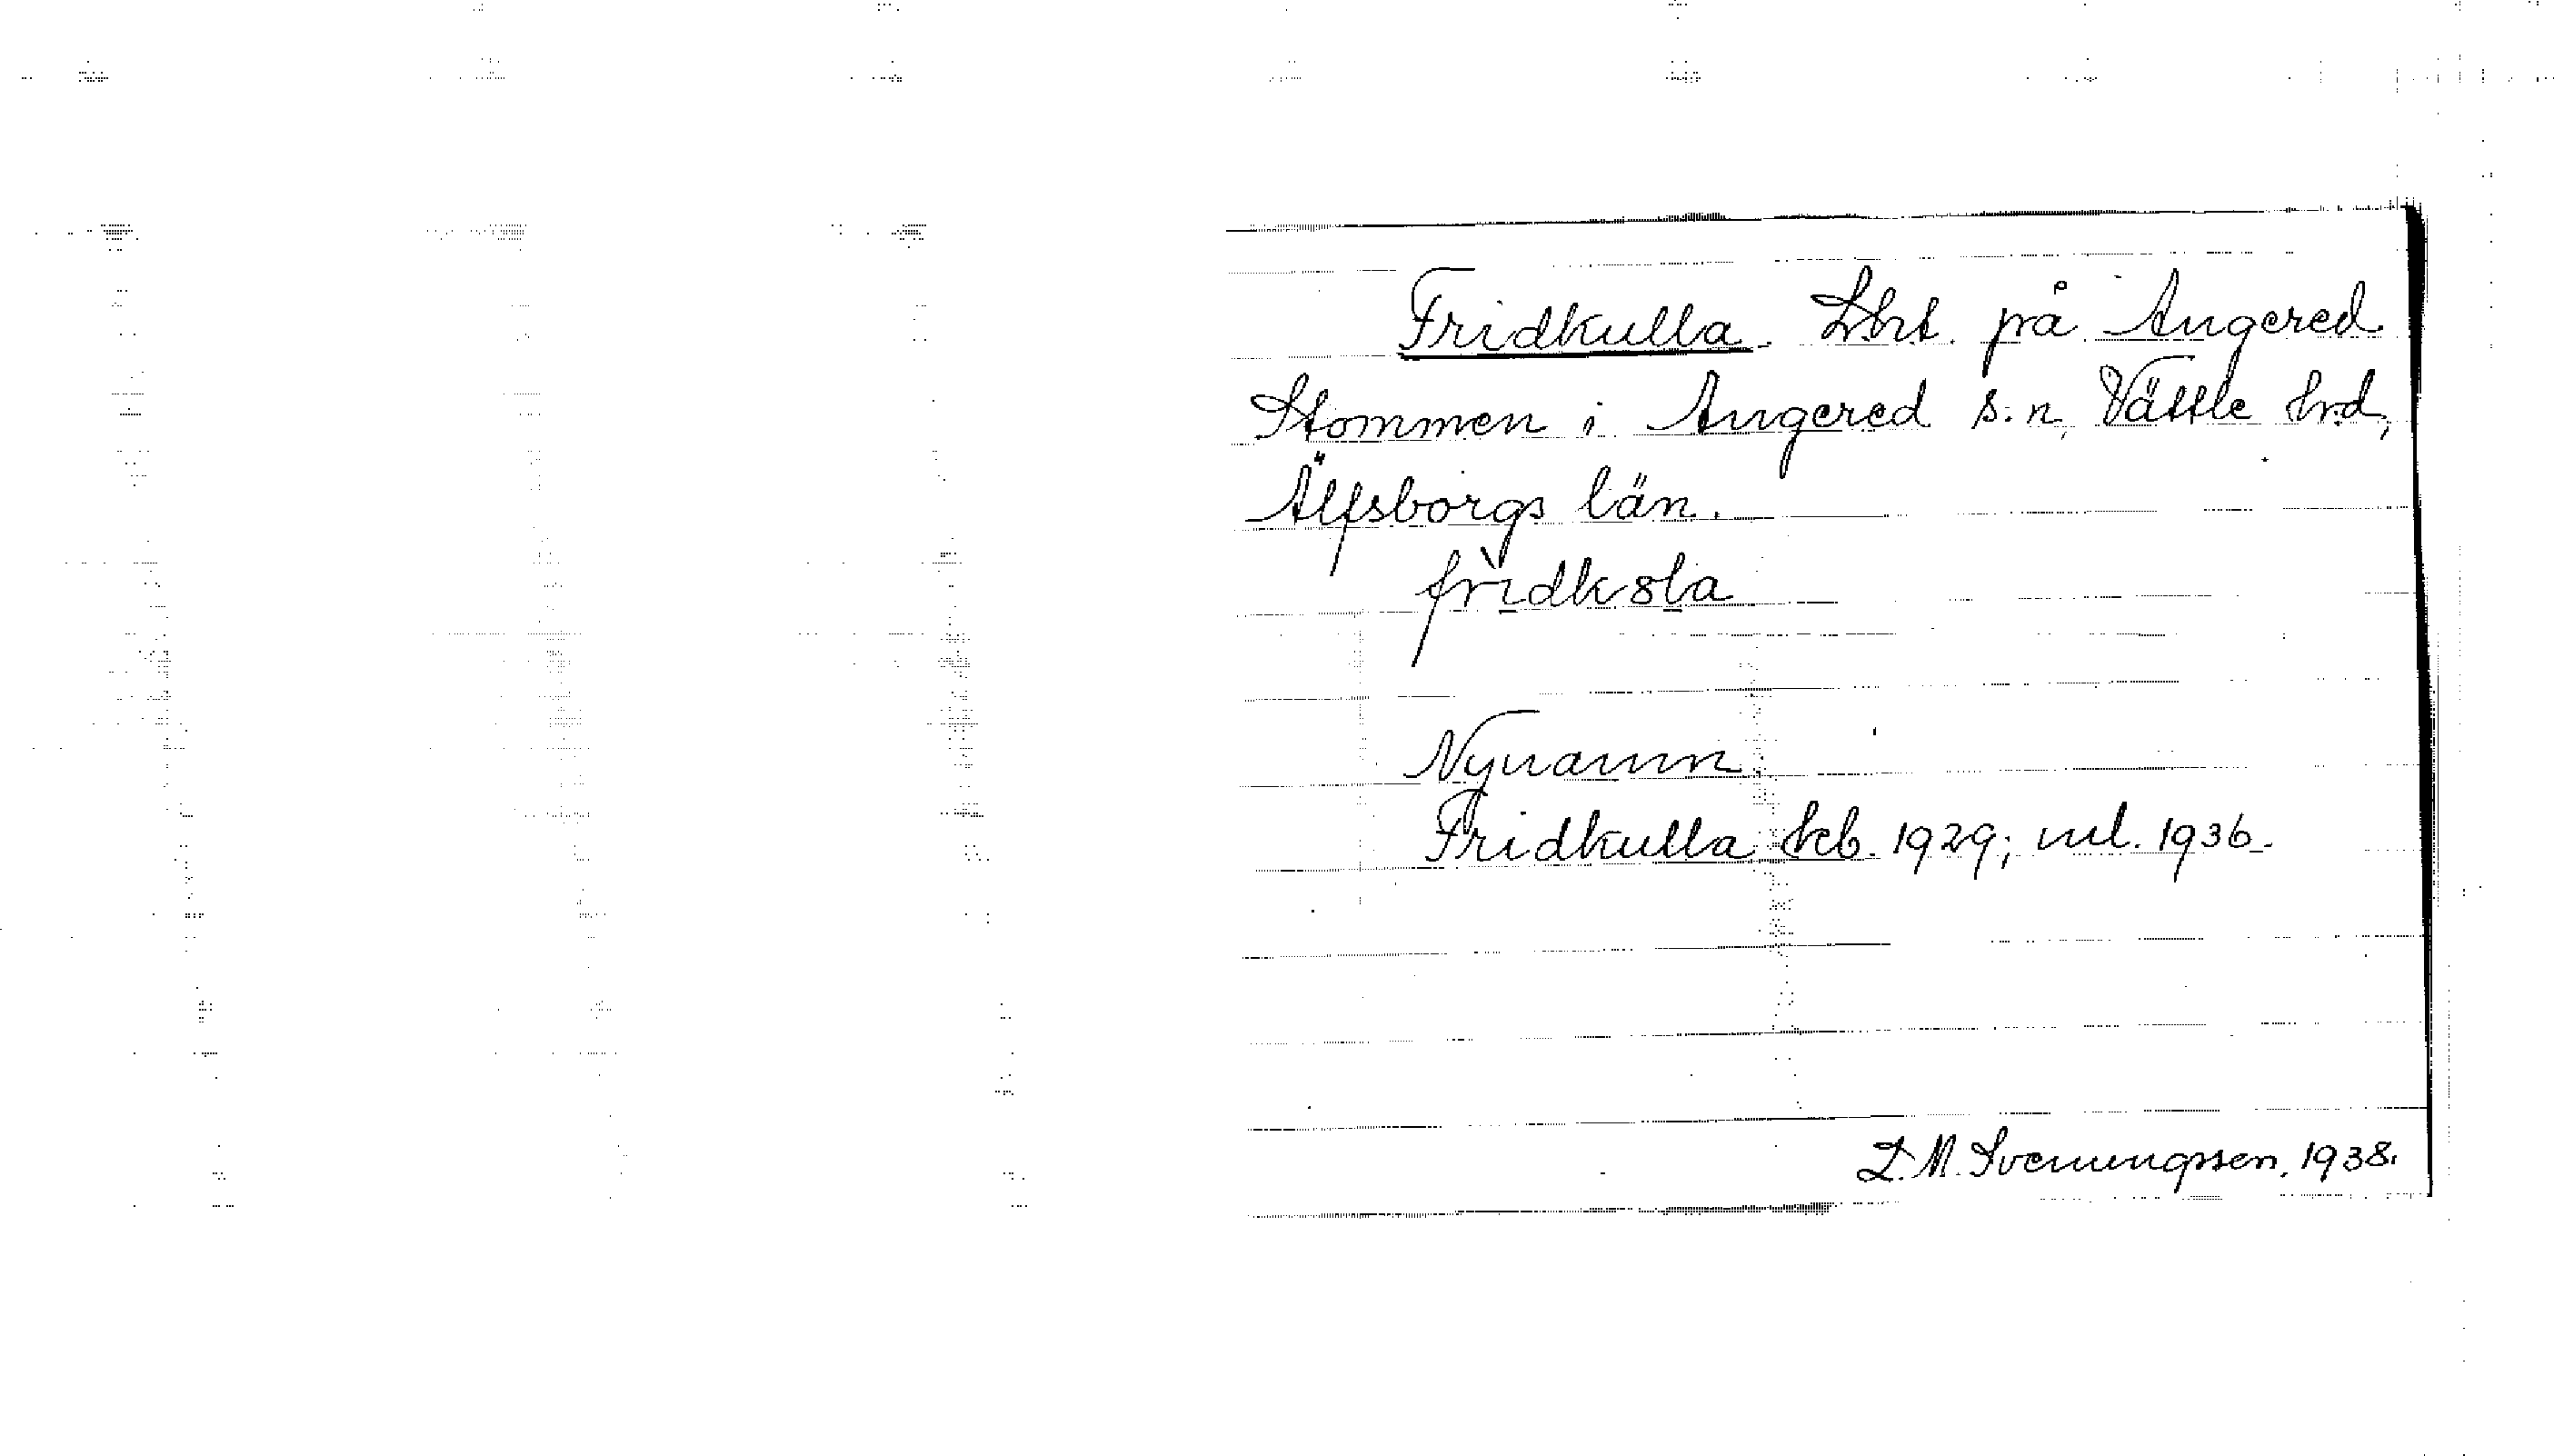 Fridkulla. Lht. på Angered
Stommen i Angered s:n, Vättle hrd,
Älfsborgs län.
Nynamn.
Fridkulla kcb. 1929; ml. 1936.
L. M. Svenungsson, 1938.